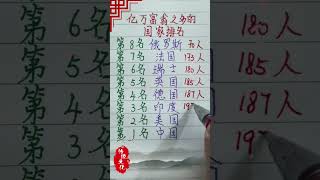 亿万富翁之多的
国家排名
第8名 俄罗斯 70人
第7名 法国 173人
第6名 瑞士 180人
第5名 英国 185人
第4名 德国 187人
第3名 印度 19
第2名 美国
第1名 中国
第6名
第5名
第4名
第3名
180人
185人
187人